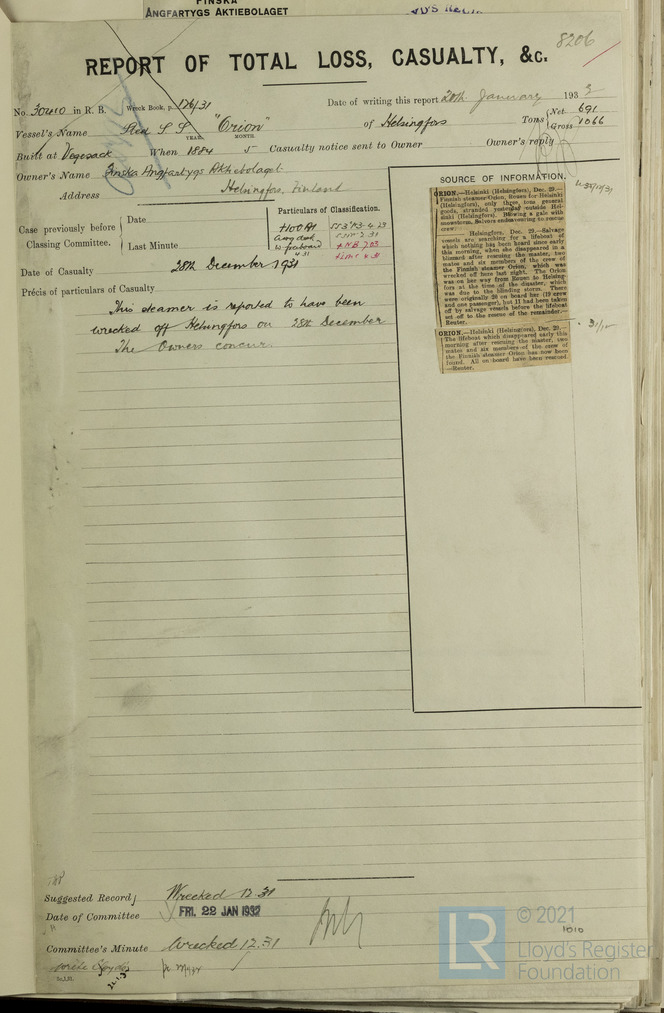 FINSKA
ANGFARTYGS AKTIEBOLAGET
8206
REPORT OF TOTAL LOSS, CASUALTY, &c.
No. 30410 in R. B. Wreck Book, p. 126/31
Date of writing this report 20th January 193
Vessel's Name Sted S S "Orion" of Helsingfors
YEAR. MONTH.
Tons { Net 691
Gross 1066
Built at Vegesack When 1884 5 Casualty notice sent to Owner Owner's reply
Owner's Name Finska Angfartygs Aktiebolaget
Address Helsingfors, Finland
Case previously before Classing Committee. { Date
Last Minute
Particulars of Classification.
+100A1
Awng deck
w freeboard
4.31
+NB 7.03
Date of Casualty 28th December 1931
Précis of particulars of Casualty
This steamer is reported to have been
wrecked off Helsingfors on 28th December
The Owners concur.
SOURCE OF INFORMATION.
ORION.—Helsinki (Helsingfors), Dec. 29.—
Finnish steamer Orion, Rouen for Helsinki
(Helsingfors), only three tons general
goods, stranded yesterday outside Hel-
sinki (Helsingfors). Blowing a gale with
snowstorm. Salvors endeavouring to rescue
crew.
Helsingfors, Dec. 29.—Salvage
vessels are searching for a lifeboat of
which nothing has been heard since early
this morning, when she disappeared in a
blizzard after rescuing the master, two
mates and six members of the crew of
the Finnish steamer Orion, which was
wrecked off here last night. The Orion
was on her way from Rouen to Helsing-
fors at the time of the disaster, which
was due to the blinding storm. There
were originally 20 on board her (19 crew
and one passenger), but 11 had been taken
off by salvage vessels before the lifeboat
set off to the rescue of the remainder.—
Reuter.
ORION.—Helsinki (Helsingfors), Dec. 29.—
The lifeboat which disappeared early this
morning after rescuing the master, two
mates and six members of the crew of
the Finnish steamer Orion has now been
found. All on board have been rescued
—Reuter.
Suggested Record Wrecked 12.31
Date of Committee FRI. 22 JAN 1932
Committee's Minute Wrecked 12.31
LR
© 2021
Lloyd's Register
Foundation
1010